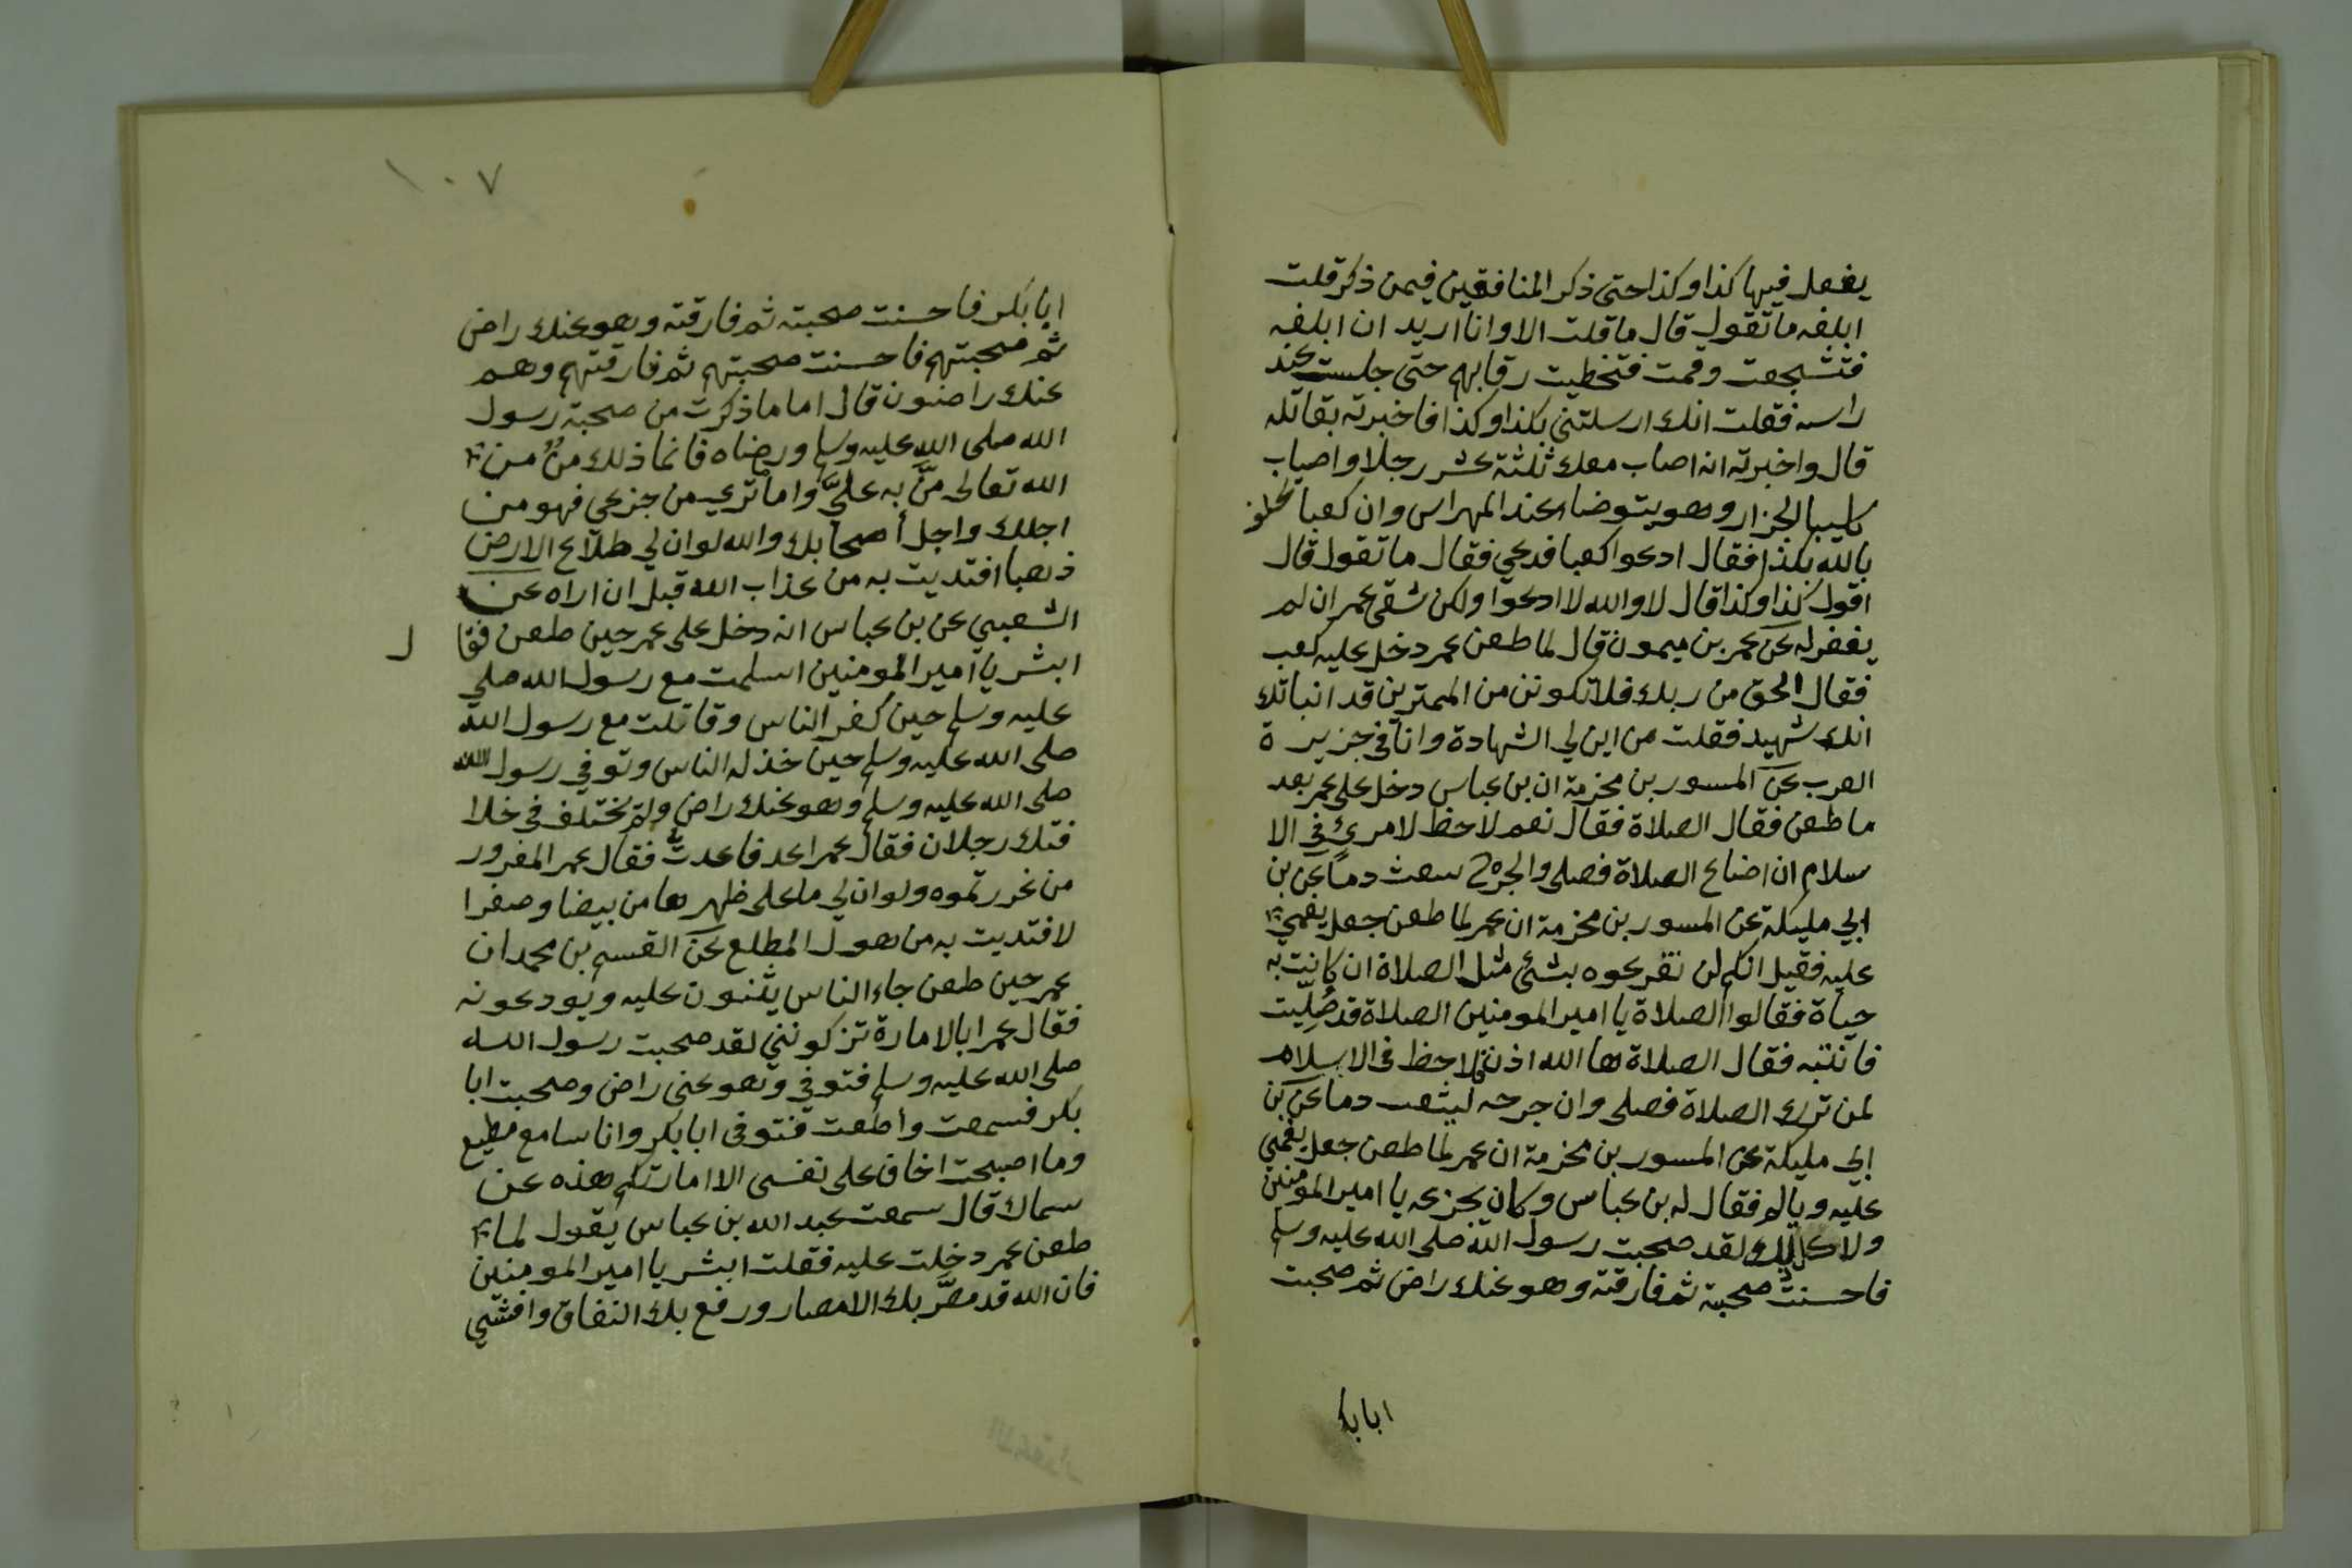 يفعل فيها كذا وكذا حتى ذكر المنافقين فيمن ذكر قلت
ابلغه ما تقول قال ما قلت الا وانا اريد ان ابلغه
فتشجعت وقمت فتخطيت رقابهم حتى جلست عند
راسه فقلت انك ارسلتني بكذا وكذا فاخبرته بقاتله
قال واخبرته انه اصاب معك ثلثة عشر رجلا واصاب
كليبا الجزار وهو يتوضاء عند المهراس وان كعبا يحلف
بالله بكذا فقال ادعوا كعبا فدعي فقال ما تقول قال
اقول كذا وكذا قال لا والله لا ادعوا ولكن شقي عمر ان لم
يغفر له عن عمر بن ميمون قال لما طعن عمر دخل عليه كعب
فقال الحق من ربك فلا تكونن من الممترين قد انباتك
انك شهيد فقلت من اين لي الشهادة وانا في جزيرة
العرب عن المسور بن مخزمة ان بن عباس دخل على عمر بعد
ما طعن فقال الصلاة فقال نعم لا حظ لامرئ في الا
سلام ان اضاع الصلاة فصلى والجرح يبعث دما عن بن
ابي مليكة عن المسور بن مخزمة ان عمر لما طعن جعل يغمي
عليه فقيل انكم لن تفرعوه بشئ مثل الصلاة ان كانت به
حياة فقالوا الصلاة يا امير المومنين الصلاة قد صليت
فانتبه فقال الصلاة ها الله اذن فلا حظ في الاسلام
لمن ترك الصلاة فصلى وان جرحه ليثعب دما عن بن
ابي مليكة عن المسور بن مخزمة ان عمر لما طعن جعل يغمي
عليه ويالم فقال له بن عباس وكان يجزعه يا امير المومنين
ولا كل ذلك ولقد صحبت رسول الله صلى الله عليه وسلم
فاحسنت صحبته ثم فارقته وهو عنك راض ثم صحبت
ابابكر
١٠٧
ابا بكر فاحسنت صحبته ثم فارقته وهو عنك راض
ثم صحبتهم فاحسنت صحبتهم ثم فارقتهم وهم
عنك راضون قال اما ما ذكرت من صحبة رسول
الله صلى الله عليه وسلم ورضاه فانما ذلك من من
الله تعالى منّ به عليّ واما ترى من جزعي فهو من
اجلك واجل أصحابك والله لو ان لي طلاع الارض
ذهبا افتديت به من عذاب الله قبل ان اراه عن
الشعبي عن بن عباس انه دخل على عمر حين طعن فقا ل
ابشر يا امير المومنين اسلمت مع رسول الله صلي
عليه وسلم حين كفر الناس وقاتلت مع رسول الله
صلى الله عليه وسلم حين خذله الناس وتوفي رسول الله
صلى الله عليه وسلم وهو عنك راض ولم يختلف في خلا
فتك رجلان فقال عمر اعد فاعدت فقال عمر المغرور
من غررتموه ولو ان لي ما على ظهرها من بيضا وصفرا
لافتديت به من هول المطلع عن القسم بن محمد ان
عمر حين طعن جاء الناس يثنون عليه ويودعونه
فقال عمر ابالامارة تزكونني لقد صحبت رسول الله
صلى الله عليه وسلم فتوفي وهو عني راض وصحبت ابا
بكر فسمعت وأطعت فتوفى ابا بكر وانا سامع مطيع
وما اصبحت اخاف على نفسى الا امارتكم هذه عن
سماك قال سمعت عبد الله بن عباس يقول لما
طعن عمر دخلت عليه فقلت ابشر يا امير المومنين
فان الله قد مصّر بك الامصار ورفع بك النفاق وافشي